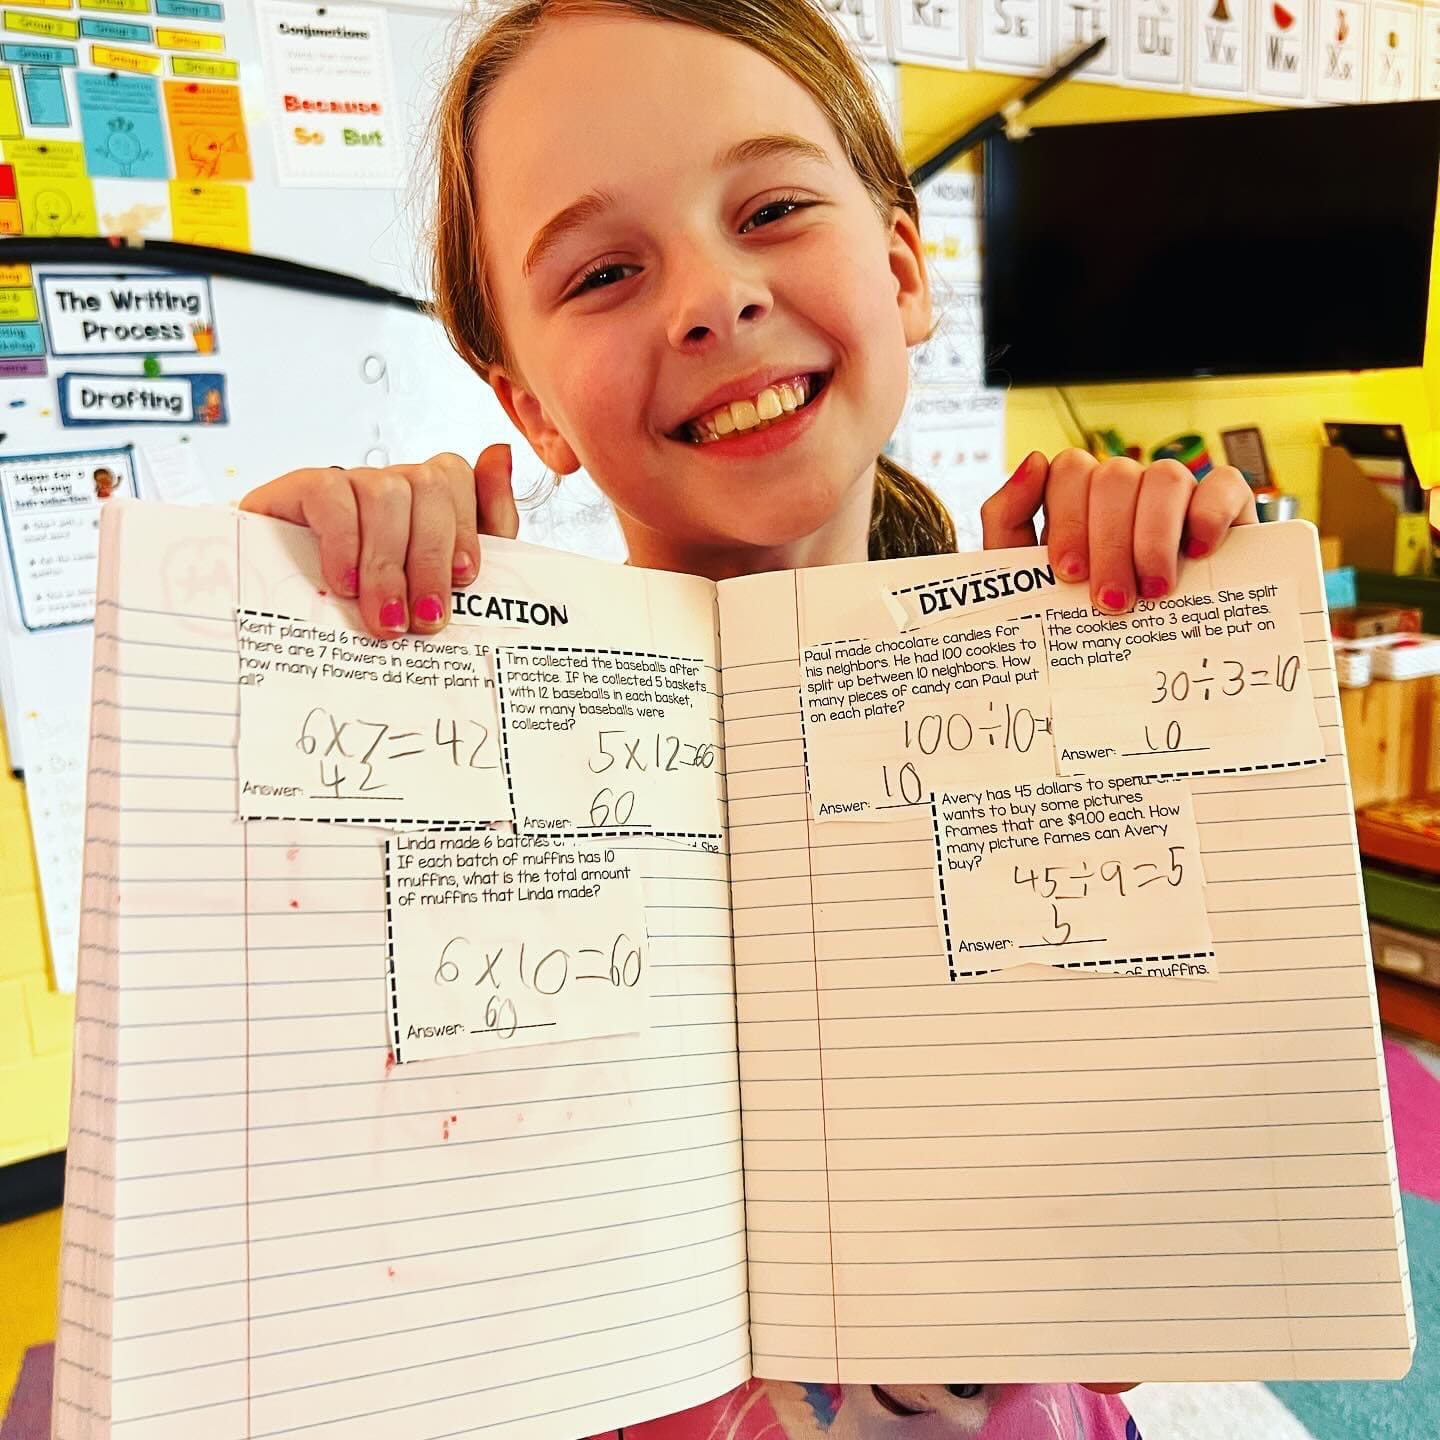 Conjunctions
Because
So But
Rr
Ss
Uu
Vv
Ww
Xx
The Writing
Process
Drafting
Ideas for a
Strong
Introduction
ICATION
Kent planted 6 rows of flowers. If
there are 7 flowers in each row,
how many flowers did Kent plant in
all?
6x7=42
42
Answer:
Tim collected the baseballs after
practice. If he collected 5 baskets
with 12 baseballs in each basket,
how many baseballs were
collected?
5x12=60
60
Answer:
Linda made 6 batches
She
If each batch of muffins has 10
muffins, what is the total amount
of muffins that Linda made?
6x10=60
60
Answer:
DIVISION
Paul made chocolate candies for
his neighbors. He had 100 cookies to
split up between 10 neighbors. How
many pieces of candy can Paul put
on each plate?
100÷10=
10
Answer:
Frieda 30 cookies. She split
the cookies onto 3 equal plates.
How many cookies will be put on
each plate?
30÷3=10
10
Answer:
Avery has 45 dollars to spend.
wants to buy some pictures
frames that are $9.00 each. How
many picture fames can Avery
buy?
45÷9=5
5
Answer:
of muffins.